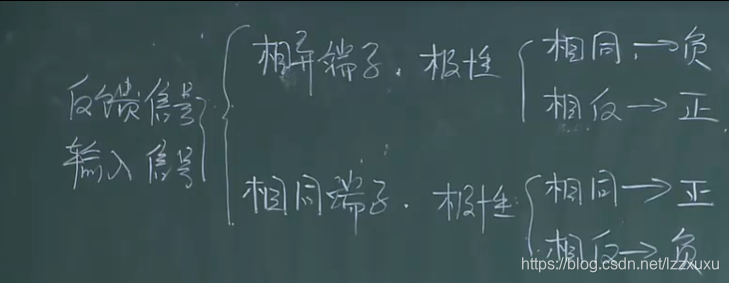 反馈信号
输入信号
相异端子. 极性
相同 → 负
相反 → 正
相同端子. 极性:
相同 → 正
相反 → 负
https://blog.csdn.net/lzzxuxu